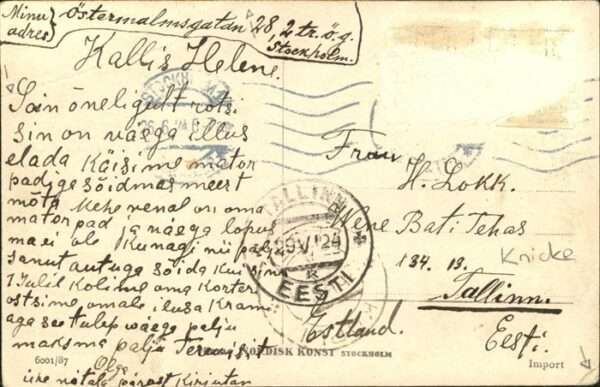 Minu
adres
Östermalmsgatan 28, 2 tr. ö. g.
Stockholm.
Kallis Helene.
Sain õneligult rotsi
siin on vaega illus
elada Käisime mator
padige sõidmas meert
möta kehe venal on oma
mator pad ja näega lopus
ma ei ole kunagi nii palj
sanut autuga sõida kui siin
1 Julil kolime oma korteri
ostsime omale ilusa krami
aga see tuleb väega palju
maksma palju Terwisit
Olga
ühe nätala pärast kirjutan
STOCKHOLM
TALLINN
29.V.24
K
EESTI
Frau
H. Lokk.
Wene Bati Tehas
134. 13.
Tallinn.
Estland.
Eesti.
Knicke
NORDISK KONST STOCKHOLM
6001/87
Import